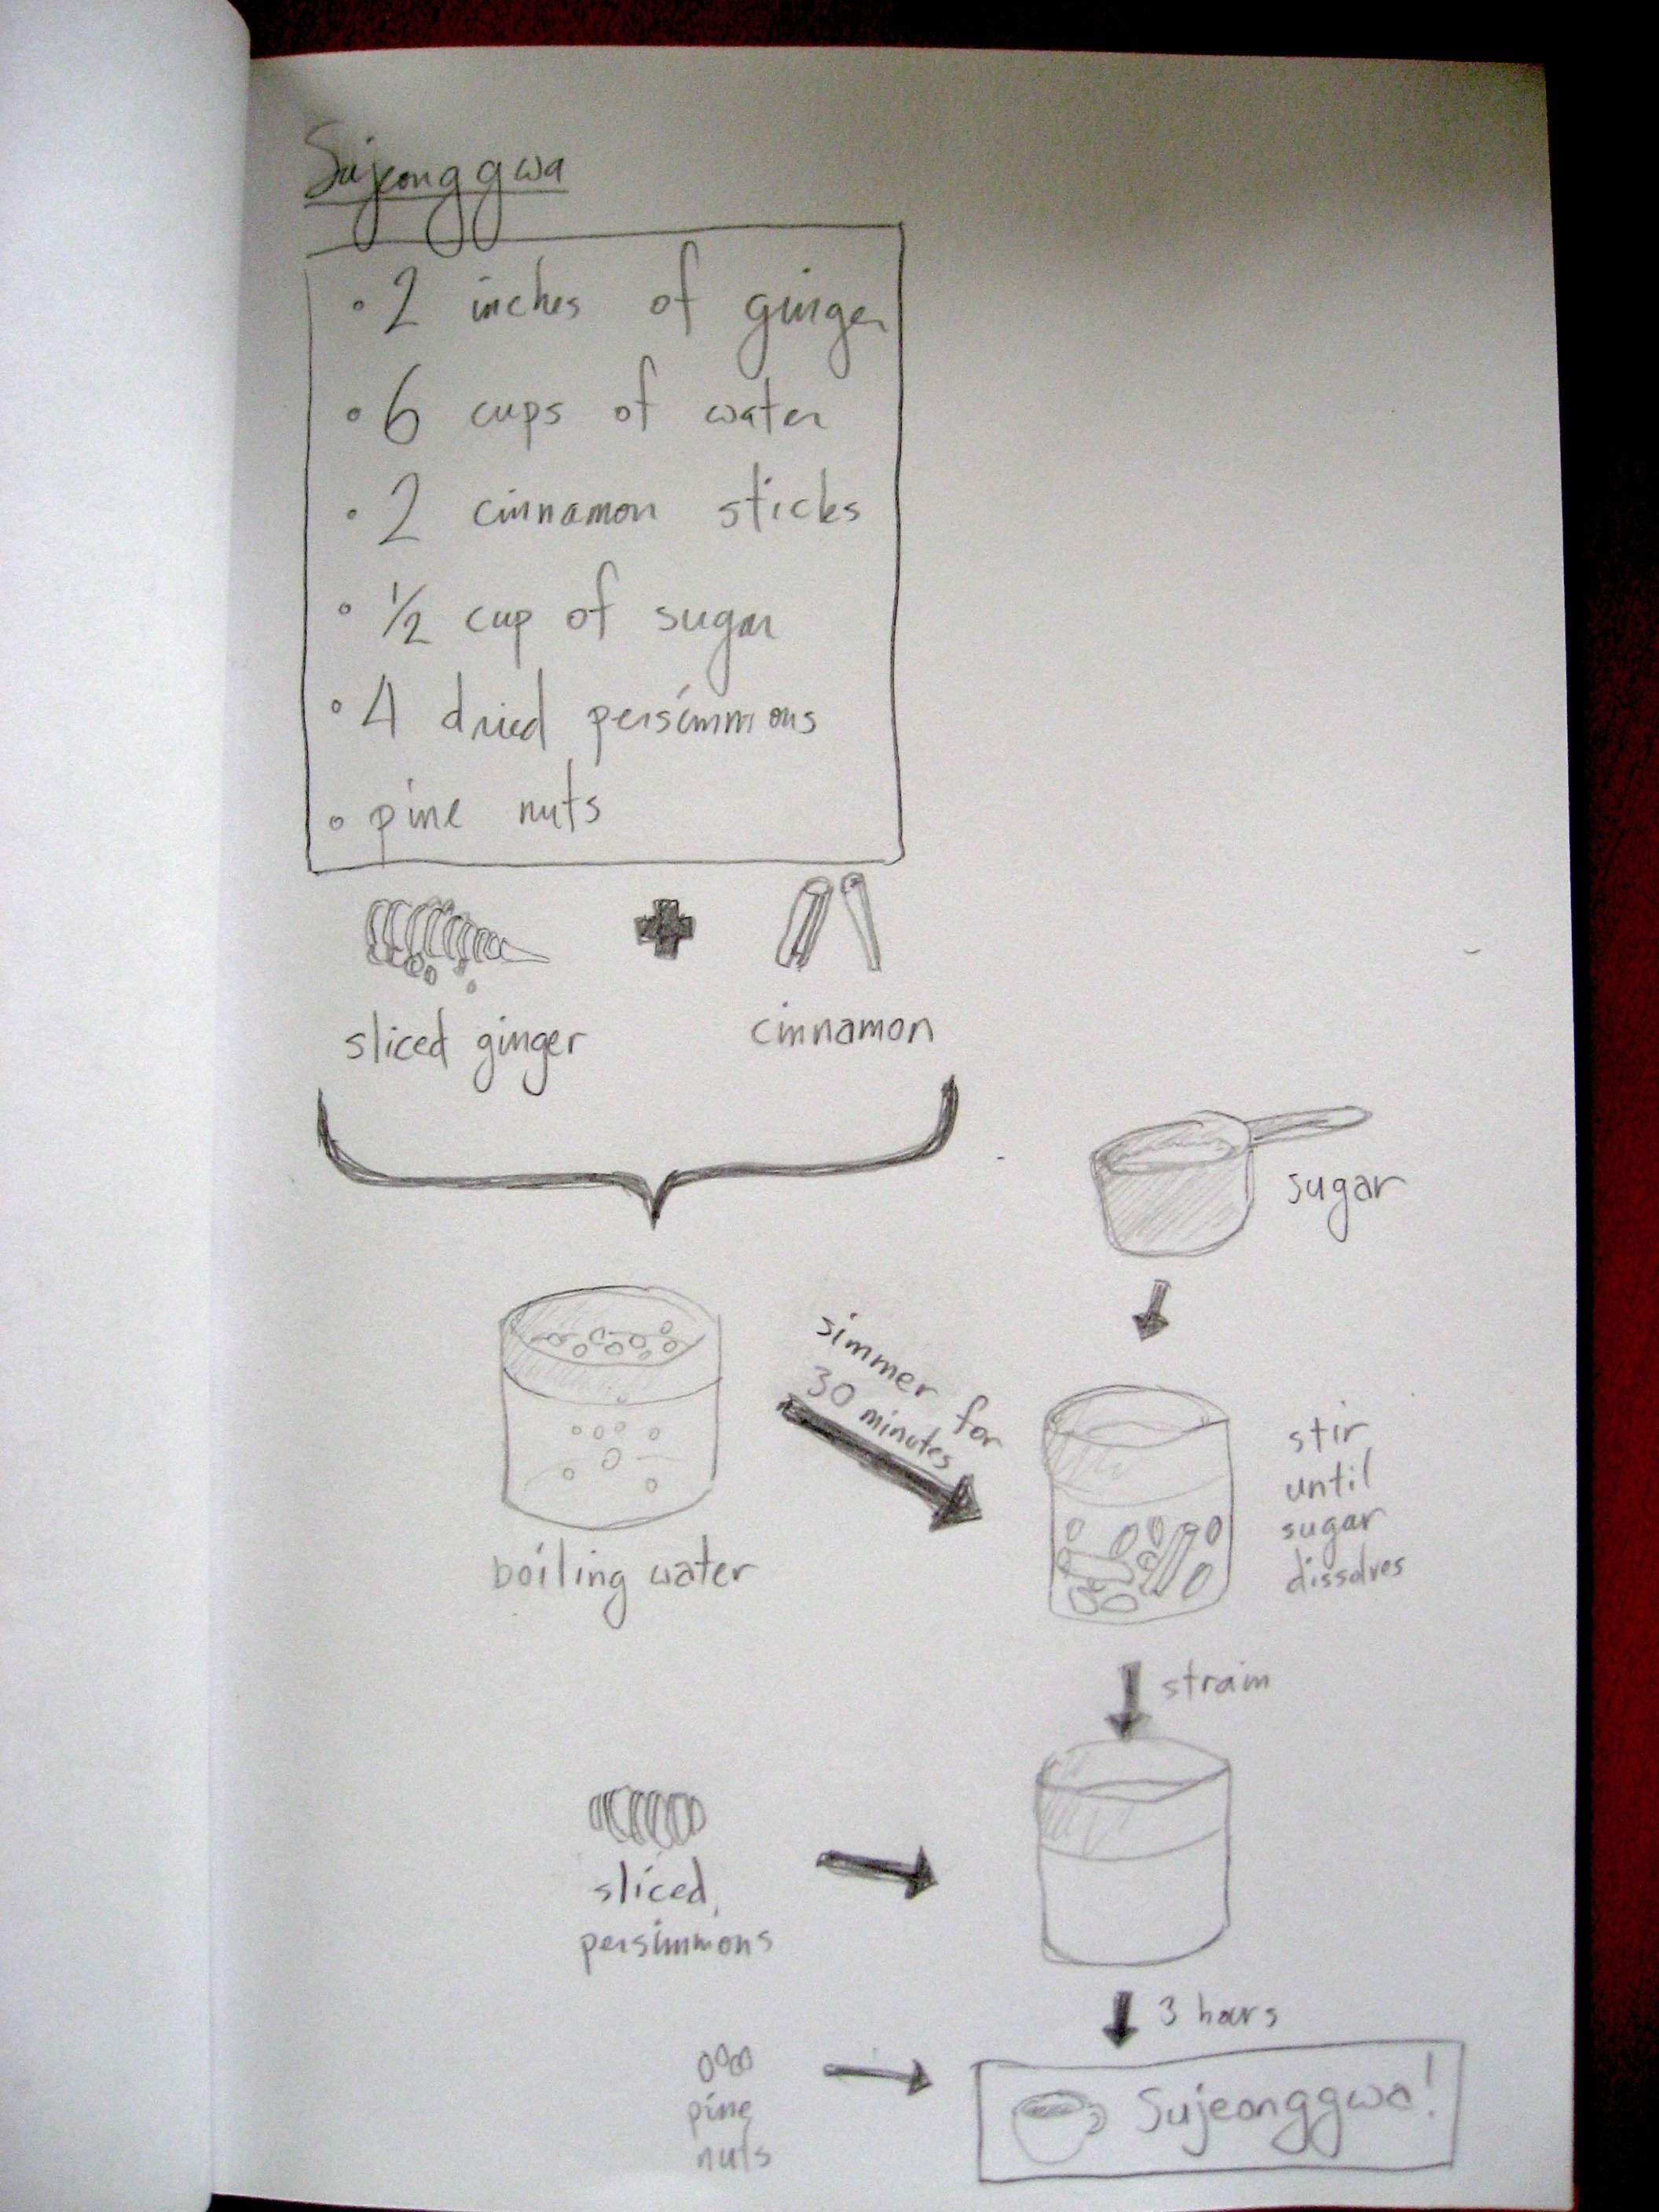 Sujeonggwa
• 2 inches of ginger
• 6 cups of water
• 2 cinnamon sticks
• 1/2 cup of sugar
• 4 dried persimmons
• pine nuts
sliced ginger
cinnamon
sugar
boiling water
simmer for
30 minutes
stir
until
sugar
dissolves
strain
sliced
persimmons
3 hours
pine
nuts
Sujeonggwa!